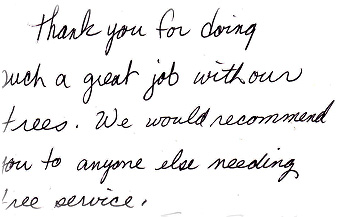 Thank you for doing
such a great job with our
trees. We would recommend
you to anyone else needing
tree service.